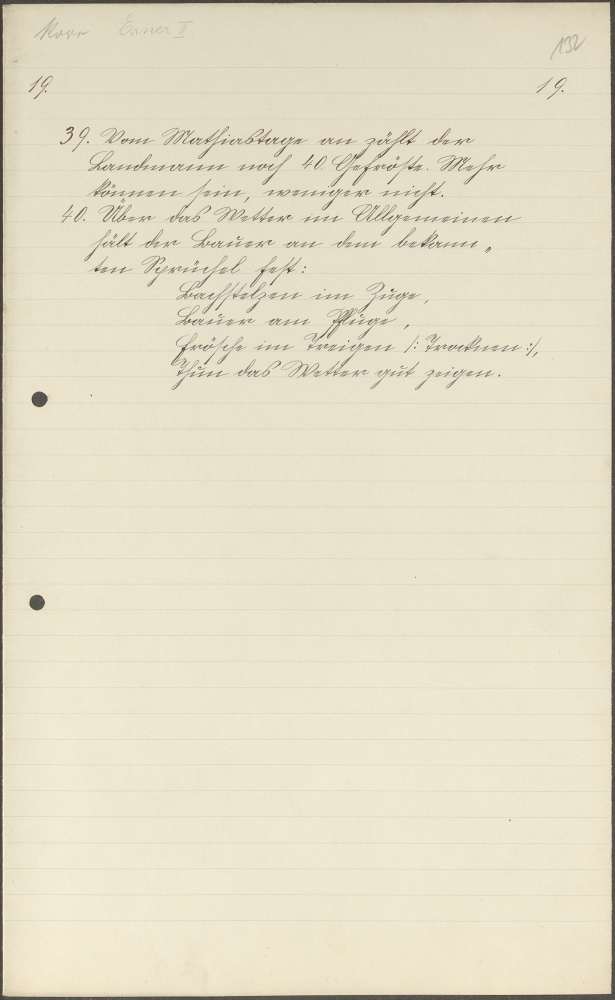 132
19. 19.
39. Vom Mathiastage an zählt der
Landmann noch 40 Gefröste. Mehr
können sein, weniger nicht.
40. Über das Wetter im Allgemeinen
hält der Bauer an dem bekann„
ten Sprüchel fest:
Bachstelzen im Zuge,
Bauer am Pfluge,
Frösche im Treigen /: Trocknen :/,
Thun das Wetter gut zeigen.